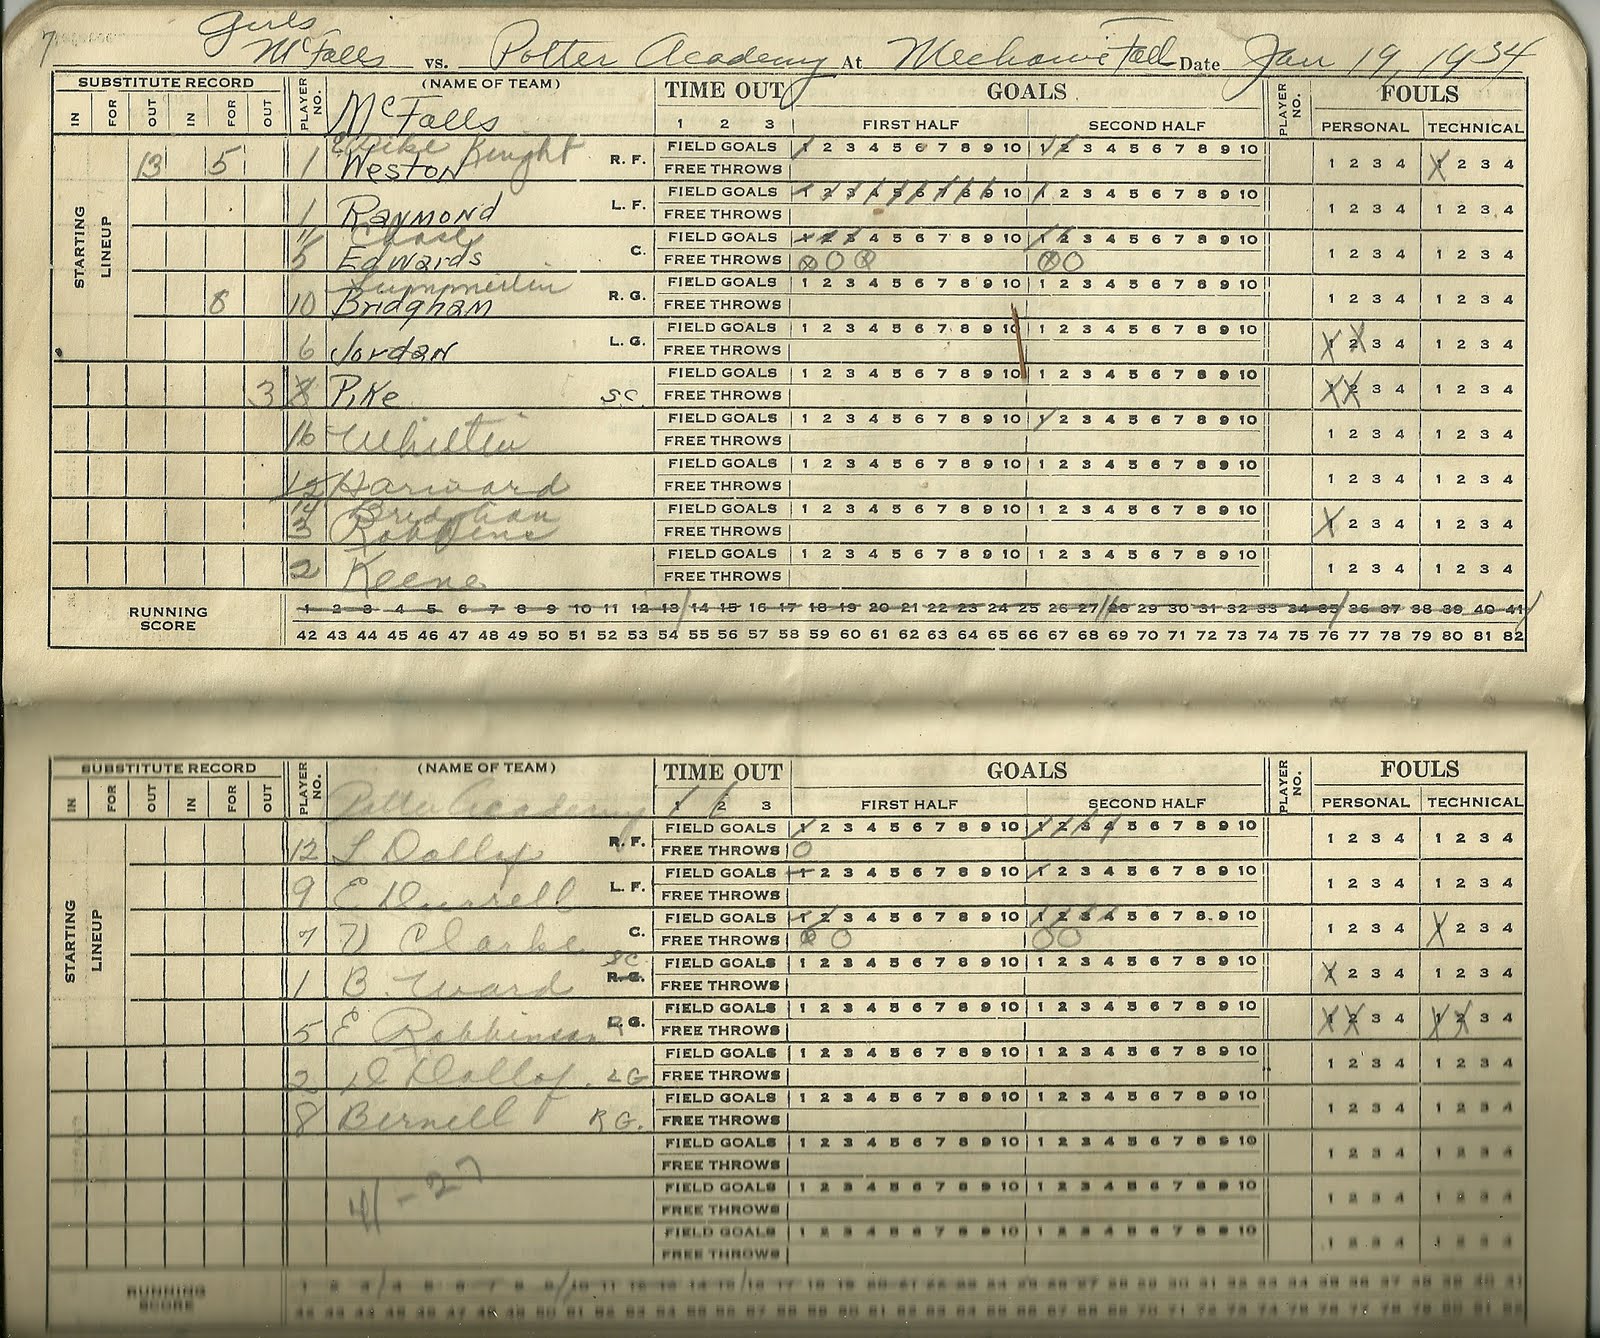 7
Girls
McFalls vs. Potter Academy At Mechanic Fall Date Jan 19, 1934
SUBSTITUTE RECORD PLAYER NO. (NAME OF TEAM) TIME OUT GOALS PLAYER NO. FOULS
IN FOR OUT IN FOR OUT McFalls 1 2 3 FIRST HALF SECOND HALF PERSONAL TECHNICAL
STARTING LINEUP
Knight FIELD GOALS 1 2 3 4 5 6 7 8 9 10 1 2 3 4 5 6 7 8 9 10
13 5 1 Weston R. F. FREE THROWS 1 2 3 4 1 2 3 4
FIELD GOALS 1 2 3 4 5 6 7 8 9 10 1 2 3 4 5 6 7 8 9 10
1 Raymond L. F. FREE THROWS 1 2 3 4 1 2 3 4
11 Chase FIELD GOALS 1 2 3 4 5 6 7 8 9 10 1 2 3 4 5 6 7 8 9 10
5 Edwards C. FREE THROWS 1 2 3 4 1 2 3 4
FIELD GOALS 1 2 3 4 5 6 7 8 9 10 1 2 3 4 5 6 7 8 9 10
8 10 Bridgham R. G. FREE THROWS 1 2 3 4 1 2 3 4
FIELD GOALS 1 2 3 4 5 6 7 8 9 10 1 2 3 4 5 6 7 8 9 10
6 Jordan L. G. FREE THROWS 1 2 3 4 1 2 3 4
FIELD GOALS 1 2 3 4 5 6 7 8 9 10 1 2 3 4 5 6 7 8 9 10
3 8 Pike S.C. FREE THROWS 1 2 3 4 1 2 3 4
FIELD GOALS 1 2 3 4 5 6 7 8 9 10 1 2 3 4 5 6 7 8 9 10
16 FREE THROWS 1 2 3 4 1 2 3 4
FIELD GOALS 1 2 3 4 5 6 7 8 9 10 1 2 3 4 5 6 7 8 9 10
12 Harward FREE THROWS 1 2 3 4 1 2 3 4
14 Bridghan FIELD GOALS 1 2 3 4 5 6 7 8 9 10 1 2 3 4 5 6 7 8 9 10
3 Robbins FREE THROWS 1 2 3 4 1 2 3 4
FIELD GOALS 1 2 3 4 5 6 7 8 9 10 1 2 3 4 5 6 7 8 9 10
2 Keene FREE THROWS 1 2 3 4 1 2 3 4
RUNNING SCORE 1 2 3 4 5 6 7 8 9 10 11 12 13 14 15 16 17 18 19 20 21 22 23 24 25 26 27 28 29 30 31 32 33 34 35 36 37 38 39 40 41
42 43 44 45 46 47 48 49 50 51 52 53 54 55 56 57 58 59 60 61 62 63 64 65 66 67 68 69 70 71 72 73 74 75 76 77 78 79 80 81 82
SUBSTITUTE RECORD PLAYER NO. (NAME OF TEAM) TIME OUT GOALS PLAYER NO. FOULS
IN FOR OUT IN FOR OUT Potter Academy 1 2 3 FIRST HALF SECOND HALF PERSONAL TECHNICAL
STARTING LINEUP
FIELD GOALS 1 2 3 4 5 6 7 8 9 10 1 2 3 4 5 6 7 8 9 10
12 L Dolloff R. F. FREE THROWS 1 2 3 4 1 2 3 4
FIELD GOALS 1 2 3 4 5 6 7 8 9 10 1 2 3 4 5 6 7 8 9 10
9 E Durrell L. F. FREE THROWS 1 2 3 4 1 2 3 4
FIELD GOALS 1 2 3 4 5 6 7 8 9 10 1 2 3 4 5 6 7 8 9 10
7 V Clarke C. FREE THROWS 1 2 3 4 1 2 3 4
SC FIELD GOALS 1 2 3 4 5 6 7 8 9 10 1 2 3 4 5 6 7 8 9 10
1 B. Ward R.G. FREE THROWS 1 2 3 4 1 2 3 4
FIELD GOALS 1 2 3 4 5 6 7 8 9 10 1 2 3 4 5 6 7 8 9 10
5 E Robbinson G. FREE THROWS 1 2 3 4 1 2 3 4
FIELD GOALS 1 2 3 4 5 6 7 8 9 10 1 2 3 4 5 6 7 8 9 10
2 D Dollof LG FREE THROWS 1 2 3 4 1 2 3 4
FIELD GOALS 1 2 3 4 5 6 7 8 9 10 1 2 3 4 5 6 7 8 9 10
8 Bernell RG. FREE THROWS 1 2 3 4 1 2 3 4
FIELD GOALS 1 2 3 4 5 6 7 8 9 10 1 2 3 4 5 6 7 8 9 10
FREE THROWS 1 2 3 4 1 2 3 4
41 - 27 FIELD GOALS 1 2 3 4 5 6 7 8 9 10 1 2 3 4 5 6 7 8 9 10
FREE THROWS 1 2 3 4 1 2 3 4
FIELD GOALS 1 2 3 4 5 6 7 8 9 10 1 2 3 4 5 6 7 8 9 10
FREE THROWS 1 2 3 4 1 2 3 4
RUNNING SCORE